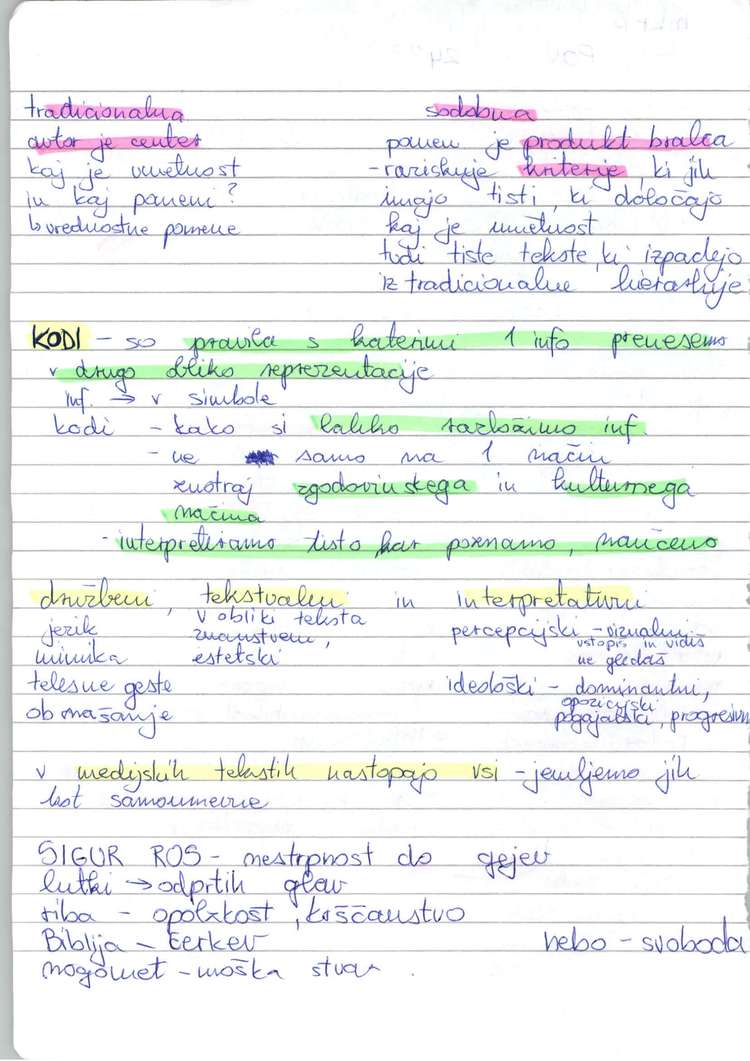 tradicionalna
avtor je center
kaj je umetnost
in kaj pomeni?
↳ vrednostne pomene
sodobna
pomen je produkt bralca
- raziskuje kriterije, ki jih
imajo tisti, ki določajo
kaj je umetnost
tudi tiste tekste, ki izpadejo
iz tradicionalne hierarhije
KODI - so pravila s katerimi 1 info prenesemo
v drugo obliko reprezentacije
inf. → v simbole
kodi - kako si lahko razložimo inf.
- ne samo na 1 način
znotraj zgodovinskega in kulturnega
načina
- interpretiramo tisto kar poznamo, naučeno
družbeni, tekstualni in interpretativni
jezik
mimika
telesne geste
obnašanje
v obliki teksta
znanstveni,
estetski
percepcijski - vizualni -
vstopiš in vidiš
ne gledaš
ideološki - dominantni,
opozicijski
pogajalski, progresivni
v medijskih tekstih nastopajo vsi - jemljemo jih
kot samoumevne
SIGUR ROS - nestrpnost do gejev
lutki → odprtih glav
riba - opolzkost, krščanstvo
Biblija - cerkev nebo - svoboda
nogomet - moška stvar.